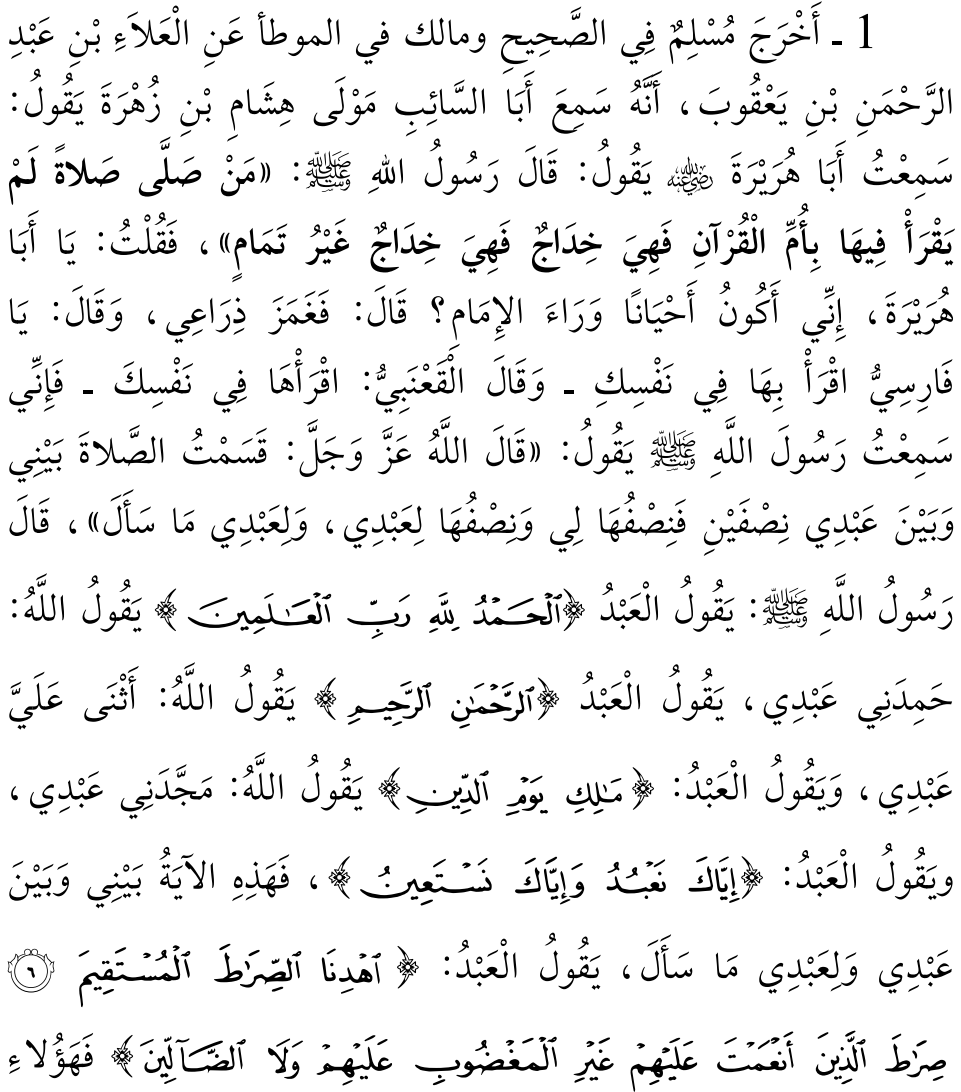 1 ـ أَخْرَجَ مُسْلِمٌ فِي الصَّحِيحِ ومالك في الموطأ عَنِ الْعَلَاءِ بْنِ عَبْدِ
الرَّحْمَنِ بْنِ يَعْقُوبَ، أَنَّهُ سَمِعَ أَبَا السَّائِبِ مَوْلَى هِشَامِ بْنِ زُهْرَةَ يَقُولُ:
سَمِعْتُ أَبَا هُرَيْرَةَ رضي الله عنه يَقُولُ: قَالَ رَسُولُ اللهِ ﷺ: «مَنْ صَلَّى صَلاةً لَمْ
يَقْرَأْ فِيهَا بِأُمِّ الْقُرْآنِ فَهِيَ خِدَاجٌ فَهِيَ خِدَاجٌ غَيْرُ تَمَامٍ»، فَقُلْتُ: يَا أَبَا
هُرَيْرَةَ، إِنِّي أَكُونُ أَحْيَانًا وَرَاءَ الإِمَامِ؟ قَالَ: فَغَمَزَ ذِرَاعِي، وَقَالَ: يَا
فَارِسِيُّ اقْرَأْ بِهَا فِي نَفْسِكِ ـ وَقَالَ الْقَعْنَبِيُّ: اقْرَأْهَا فِي نَفْسِكَ ـ فَإِنِّي
سَمِعْتُ رَسُولَ اللَّهِ ﷺ يَقُولُ: «قَالَ اللَّهُ عَزَّ وَجَلَّ: قَسَمْتُ الصَّلاةَ بَيْنِي
وَبَيْنَ عَبْدِي نِصْفَيْنِ فَنِصْفُهَا لِي وَنِصْفُهَا لِعَبْدِي، وَلِعَبْدِي مَا سَأَلَ»، قَالَ
رَسُولُ اللَّهِ ﷺ: يَقُولُ الْعَبْدُ ﴿ٱلْحَمْدُ لِلَّهِ رَبِّ ٱلْعَٰلَمِينَ﴾ يَقُولُ اللَّهُ:
حَمِدَنِي عَبْدِي، يَقُولُ الْعَبْدُ ﴿ٱلرَّحْمَٰنِ ٱلرَّحِيمِ﴾ يَقُولُ اللَّهُ: أَثْنَى عَلَيَّ
عَبْدِي، وَيَقُولُ الْعَبْدُ: ﴿مَٰلِكِ يَوْمِ ٱلدِّينِ﴾ يَقُولُ اللَّهُ: مَجَّدَنِي عَبْدِي،
ويَقُولُ الْعَبْدُ: ﴿إِيَّاكَ نَعْبُدُ وَإِيَّاكَ نَسْتَعِينُ﴾، فَهَذِهِ الآيَةُ بَيْنِي وَبَيْنَ
عَبْدِي وَلِعَبْدِي مَا سَأَلَ، يَقُولُ الْعَبْدُ: ﴿ٱهْدِنَا ٱلصِّرَٰطَ ٱلْمُسْتَقِيمَ ٦
صِرَٰطَ ٱلَّذِينَ أَنْعَمْتَ عَلَيْهِمْ غَيْرِ ٱلْمَغْضُوبِ عَلَيْهِمْ وَلَا ٱلضَّآلِّينَ﴾ فَهَؤُلاءِ